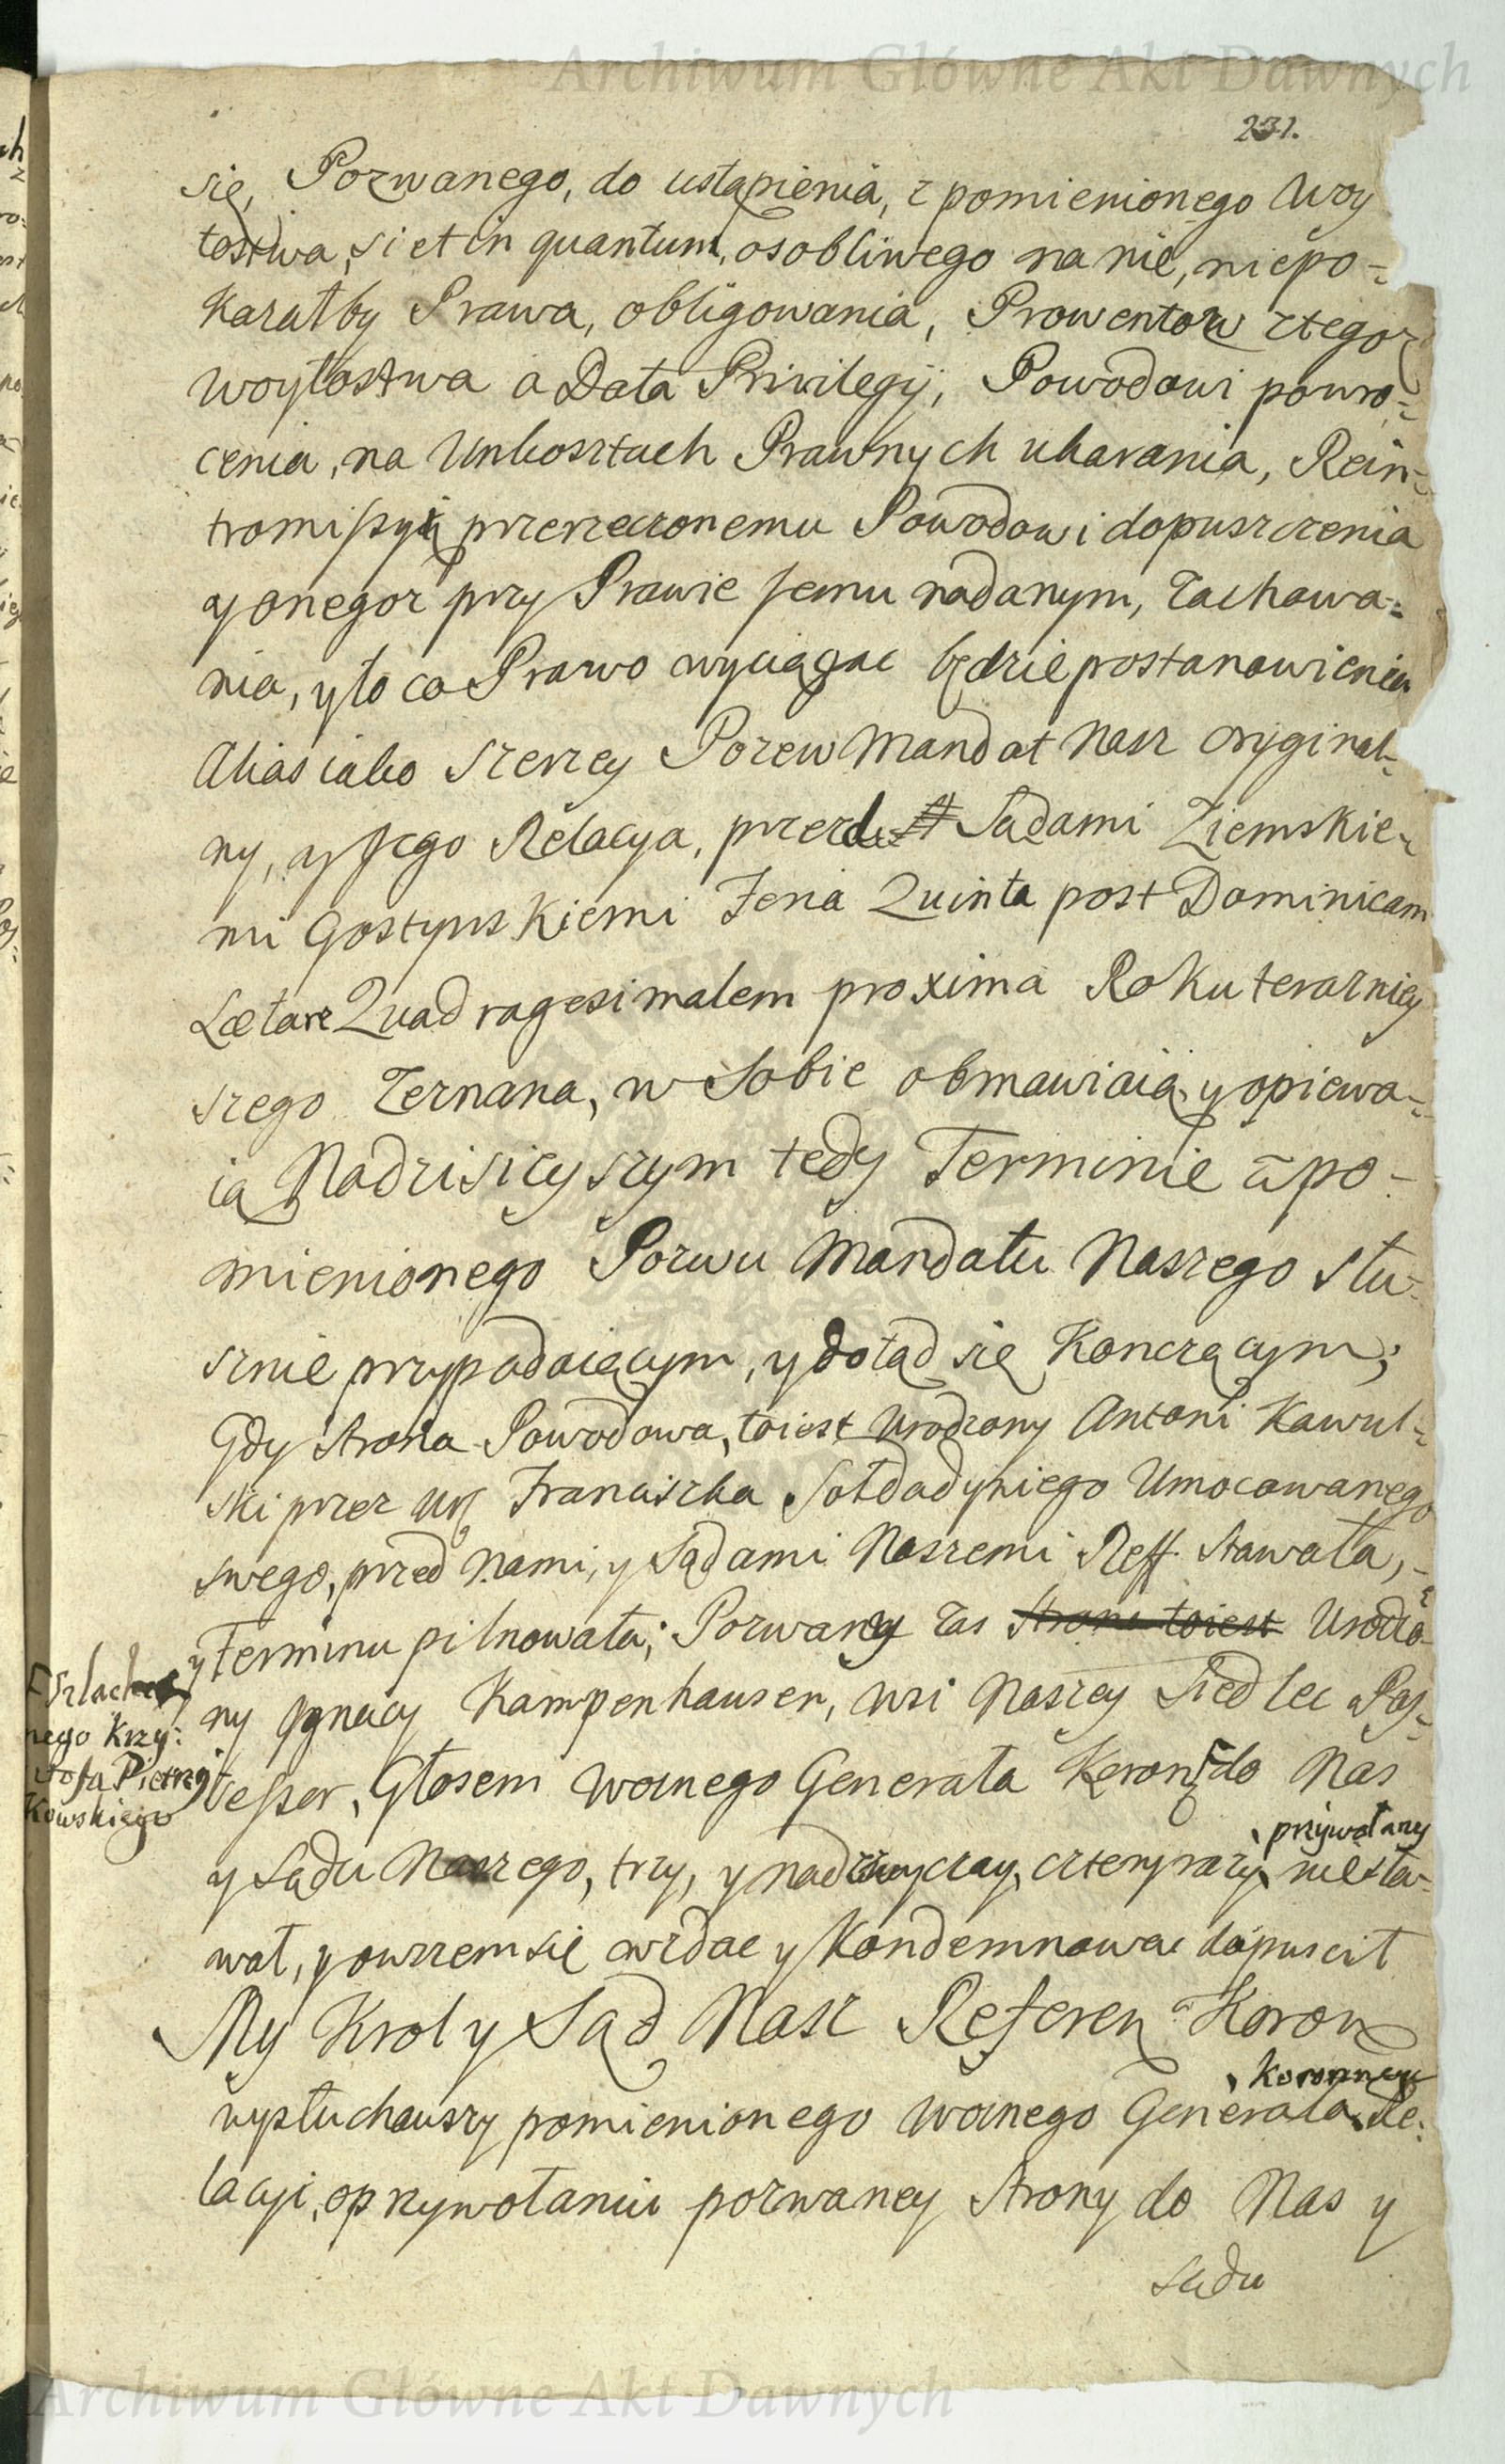 Archiwum Główne Akt Dawnych
231.
się, Pozwanego, do ustąpienia, z pomienionego Woy
tostwa, si et in quantum, osobliwego na nie, niepo-
kazałby Prawa, obligowania, Prowentow ztegoz
woytostwa a Data Privilegÿ, Powodowi powro-
cenia, na Unkosztach Prawnych ukarania, Rein-
tromissyi przerzeczonemu Powodowi dopuszczenia
y onegoz przy Prawie Jemu nadanym, Zachowa-
nia, y to co Prawo wyciągac będzie postanowienia
Alias iako szerzey Pozew Mandat Nasz oryginal-
ny, a y Jego Relacya, przed Sądami Ziemskie-
mi Gostynskiemi Feria Quinta post Dominicam
Lætare Quadragesimalem proxima Roku terazniey
szego Zeznana, w Sobie obmawiaią, y opiewa-
ią Nadzisieyszym tedy Terminie a po-
mienionego Pozwu Mandatu Naszego słu-
sznie przypadaiącym, y dotąd się Konczącym;
Gdy Strona Powodowa, toiest Urodzony Antoni Kawul-
ski przez Ur Franciszka Sołdadyniego Umocowanego
swego, przed Nami, y Sądami Naszemi Reff. Stawała,
y Terminu pilnowała; Pozwany Zas Strona toiest Urodzo-
ny Jgnacy Kampenhauser, wsi Naszey Siedlec Pos-
sessor, Głosem woznego Generała Koron do Nas
Szlachet
nego Krzy:
stofa Pietrzy
kowskiego
przywołany
y Sądu Naszego, trzy, y nadzwyczay, cztery razy, niesta-
wał, y owszem się wzdac y Kondemnowac dopuscił
My Krol y Sąd Nasz Referen Koron
koronnego
wysłuchawszy pomienionego woznego Generała Re-
lacyi, o przywołaniu pozwaney Strony do Nas y
sądu
Archiwum Główne Akt Dawnych